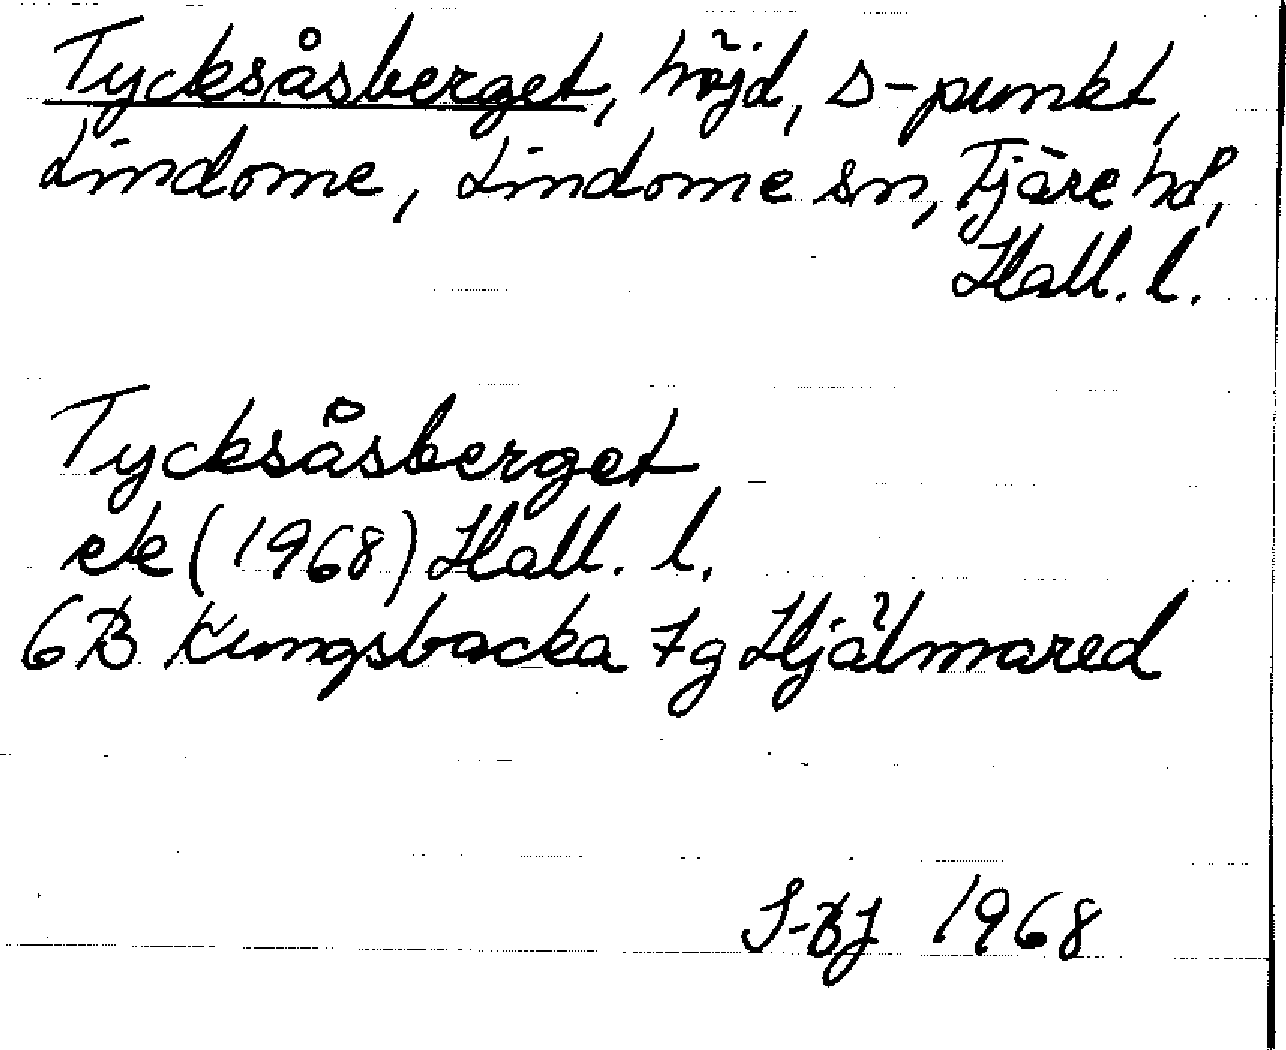 Tycksåsberget, höjd, s-punkt,
Lindome, Lindome sn, Fjäre hd,
Hall. l.
Tycksåsberget
ek (1968) Hall. l.
6B Kungsbacka 7g Hjälmared
1968